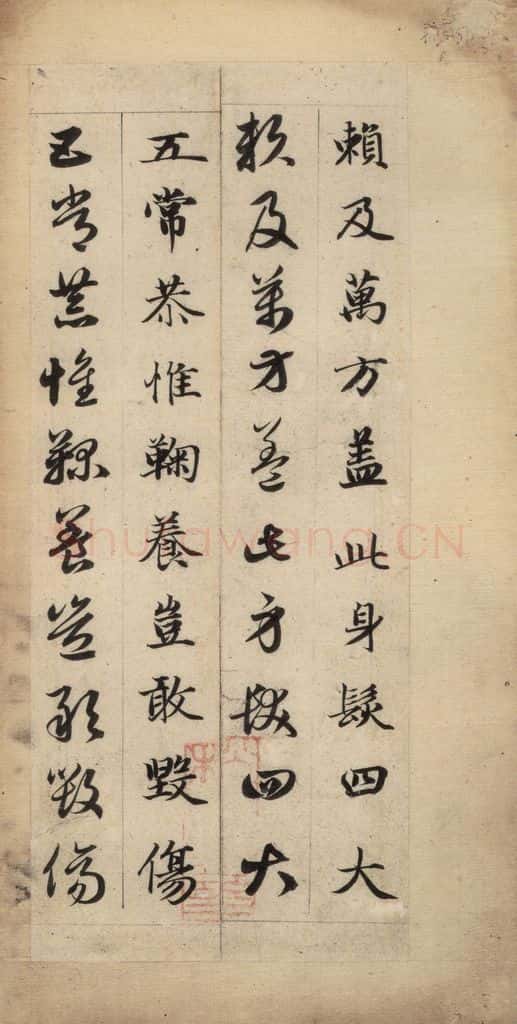 賴及萬方盖此身髮四大
賴及萬方盖此身髮四大
五常恭惟鞠養豈敢毀傷
五常恭惟鞠養豈敢毀傷